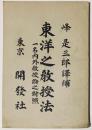 峰是三郎譯補
東洋之教授法
一名內外教授論之對照
東京 開發社